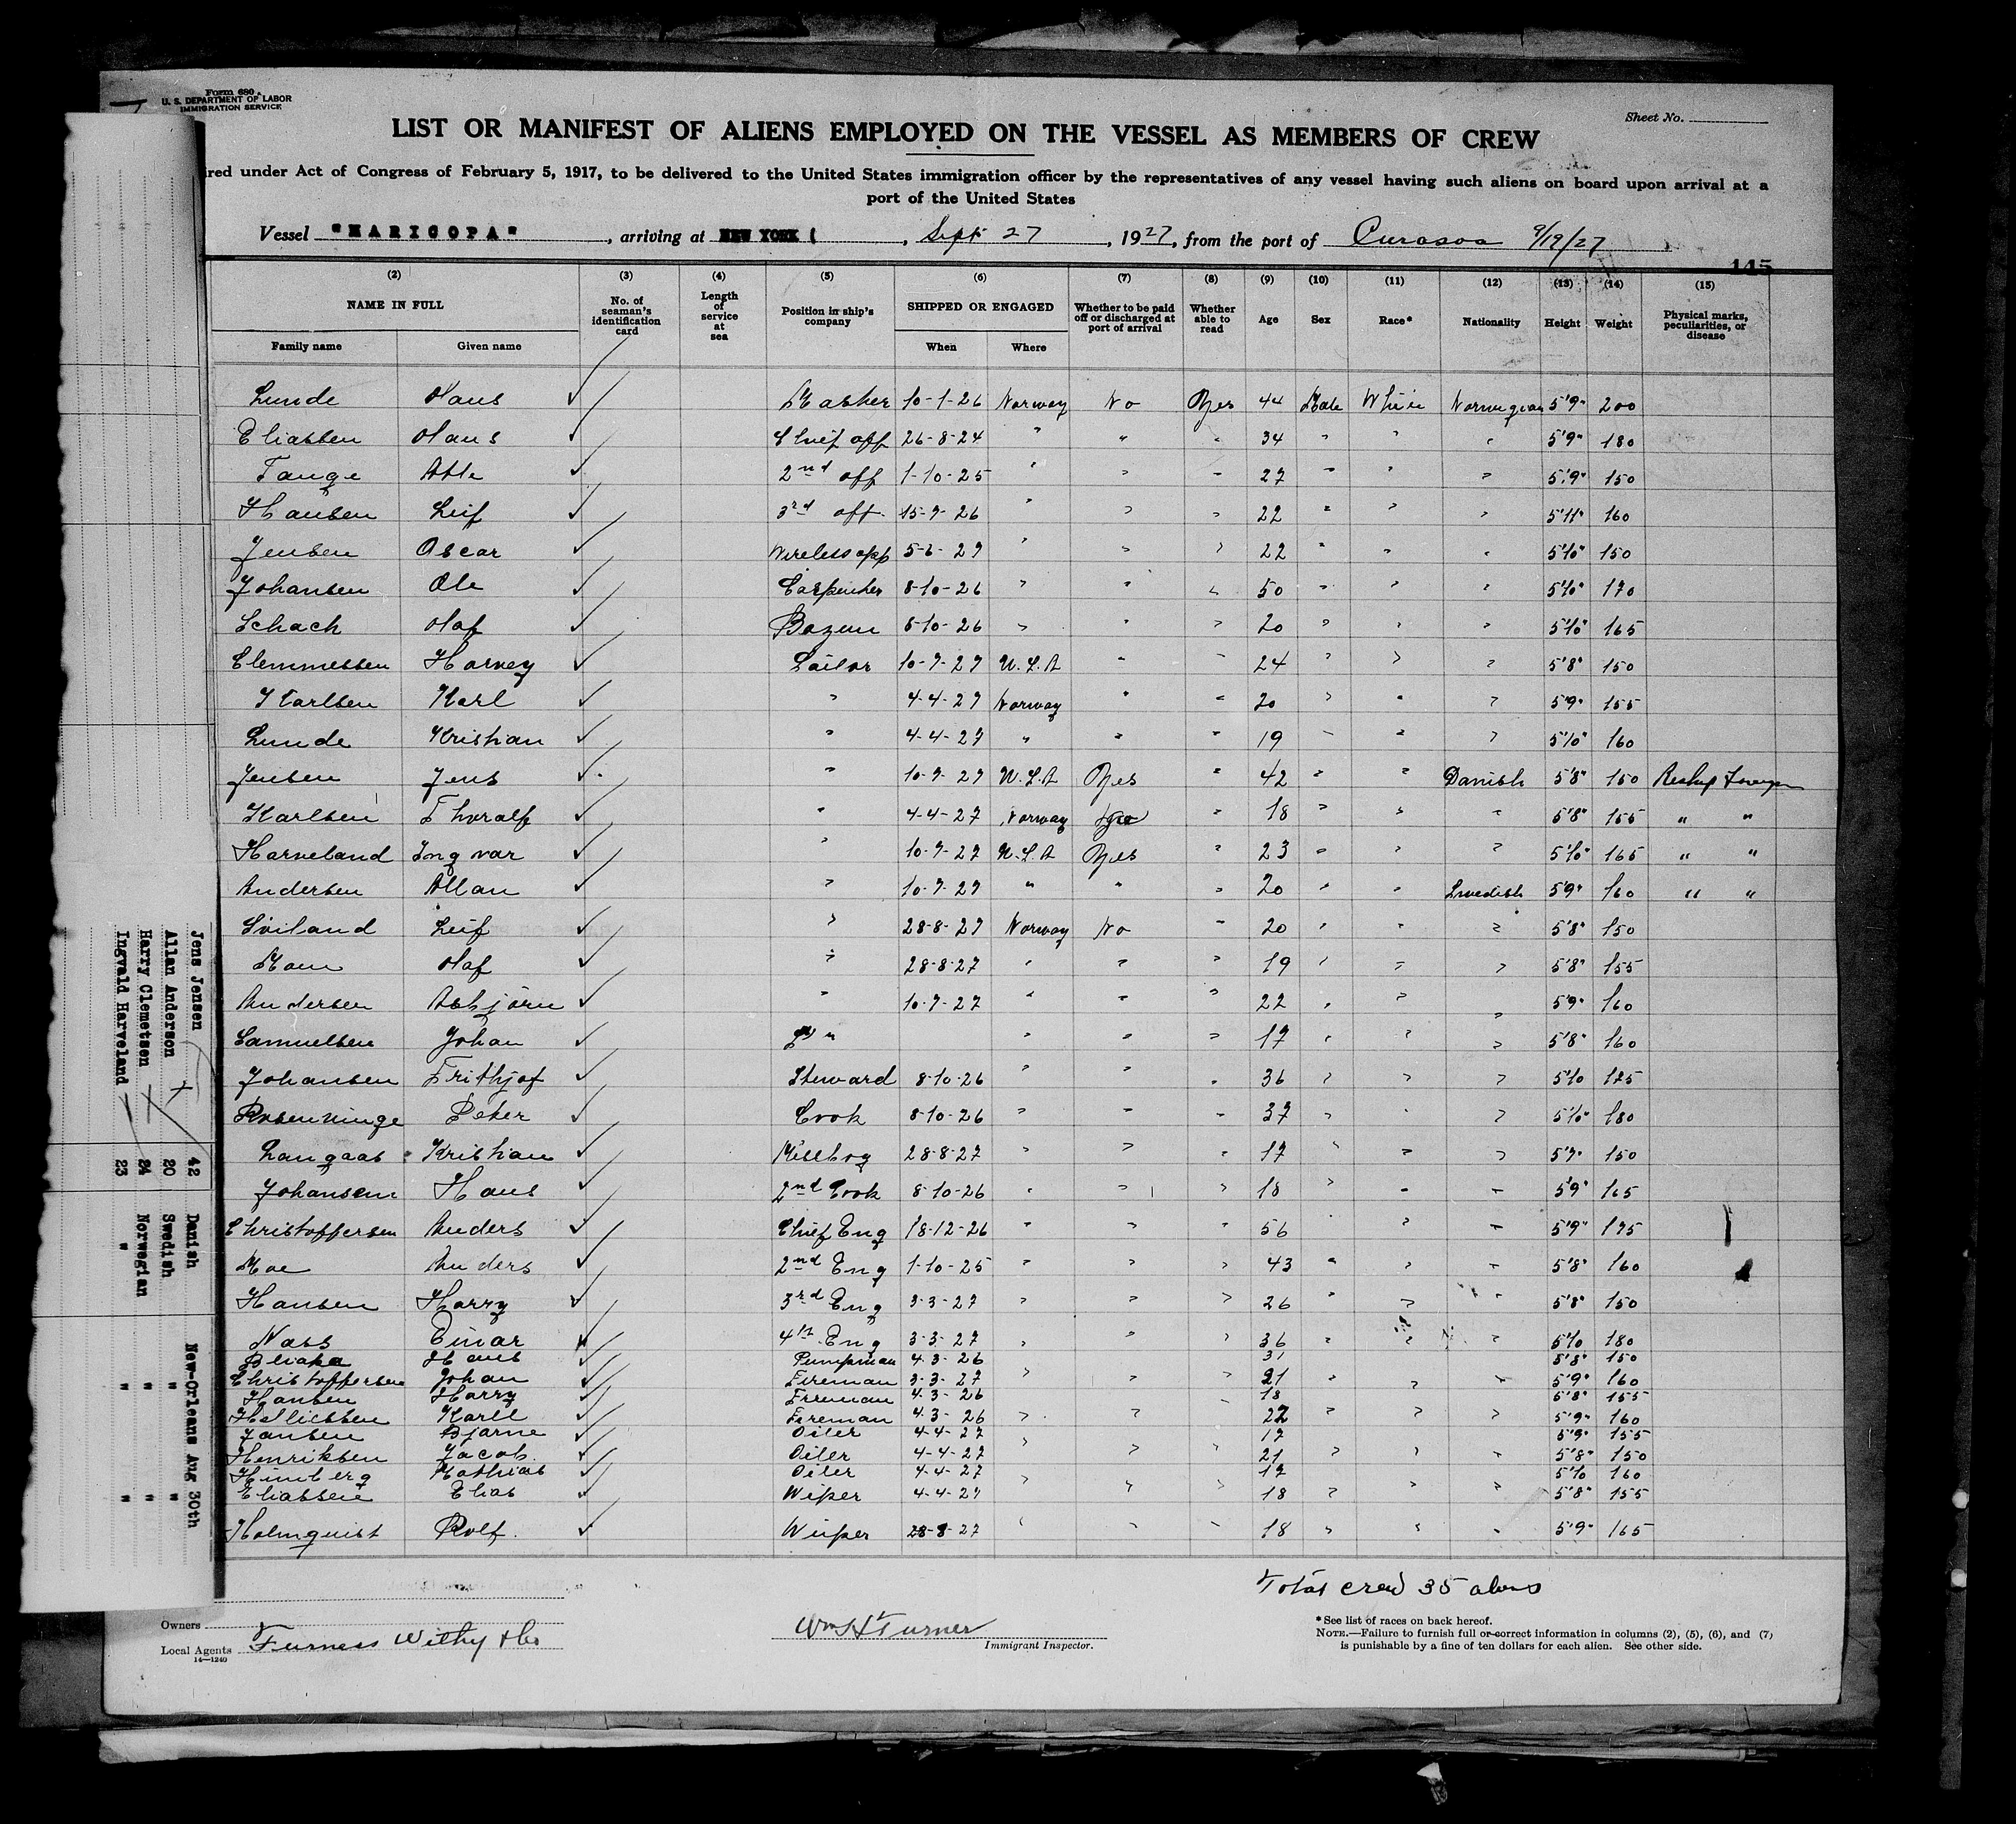 Form 680
U. S. DEPARTMENT OF LABOR
IMMIGRATION SERVICE
Sheet No.
LIST OR MANIFEST OF ALIENS EMPLOYED ON THE VESSEL AS MEMBERS OF CREW
ired under Act of Congress of February 5, 1917, to be delivered to the United States immigration officer by the representatives of any vessel having such aliens on board upon arrival at a
port of the United States
Vessel "MARICOPA", arriving at NEW YORK (, Sept 27, 1927, from the port of Curasoa 9/19/27
145
(2) (3) (4) (5) (6) (7) (8) (9) (10) (11) (12) (13) (14) (15)
NAME IN FULL No. of seaman's identification card Length of service at sea Position in ship's company SHIPPED OR ENGAGED Whether to be paid off or discharged at port of arrival Whether able to read Age Sex Race* Nationality Height Weight Physical marks, peculiarities, or disease
Family name Given name When Where
Lunde Hans ✓ Master 10-1-26 Norway No Yes 44 Male White Norwegian 5'9" 200
Eliassen Hans ✓ Chief off 26-8-24 " " " 34 " " " 5'9" 180
Tange Atle ✓ 2nd off 1-10-25 " " " 27 " " " 5'9" 150
Hansen Leif ✓ 3rd off 15-9-26 " " " 22 " " " 5'11" 160
Jensen Oscar ✓ Wireless opp 5-6-27 " " " 22 " " " 5'10" 150
Johansen Ole ✓ Carpenter 8-10-26 " " " 50 " " " 5'10" 170
Schach Olaf ✓ Bozun 8-10-26 " " " 20 " " " 5'10" 165
Clemmetsen Harvey ✓ Sailor 10-9-27 U.S.A " " 24 " " " 5'8" 150
Karlsen Karl ✓ " 4-4-27 Norway " " 20 " " " 5'9" 155
Lunde Kristian ✓ " 4-4-27 " " " 19 " " " 5'10" 160
Jensen Jens ✓ " 10-9-27 U.S.A Yes " 42 " " Danish 5'8" 150 Reship Foreign
Karlsen Thoralf ✓ " 4-4-27 Norway " 18 " " " 5'8" 155 " "
Harveland Ingvar ✓ " 10-9-27 U.S.A Yes " 23 " " " 5'10" 165 " "
Andersen Allan ✓ " 10-9-27 " " " 20 " " Swedish 5'9" 160 " "
Sviland Leif ✓ " 28-8-27 Norway No " 20 " " " 5'8" 150
Olaf ✓ " 28-8-27 " " " 19 " " " 5'8" 155
Andersen Asbjörn ✓ " 10-9-27 " " " 22 " " " 5'9" 160
Samuelsen Johan ✓ " " " " 17 " " " 5'8" 160
Johansen Frithjof ✓ Steward 8-10-26 " " " 36 " " " 5'10 175
Rosenvinge Peter ✓ Cook 8-10-26 " " " 37 " " " 5'10" 180
Langaas Kristian ✓ Messboy 28-8-27 " " " 17 " " " 5'9" 150
Johansen Hans ✓ 2nd Cook 8-10-26 " " " 18 " " " 5'9" 165
Christoffersen Anders ✓ Chief Eng 18-12-26 " " " 56 " " 5'9" 175
Moe Anders ✓ 2nd Eng 1-10-25 " " " 43 " " " 5'8" 160
Hansen Harry ✓ 3rd Eng 3-3-27 " " " 26 " " " 5'8" 150
Nass Einar ✓ 4th Eng 3-3-27 " " " 36 " " " 5'10 180
Hans ✓ Pumpman 4-3-26 31 5'8" 150
Christoffersen Johan ✓ Fireman 3-3-27 " " " 21 " " " 5'9" 160
Hansen Harry ✓ Fireman 4-3-26 " 18 5'8" 155
Karll ✓ Fireman 4-3-26 " " 22 " " " 5'9" 160
Jansen Bjarne ✓ Oiler 4-4-27 17 5'9" 155
Henriksen Jacob ✓ Oiler 4-4-27 " " " 21 " " " 5'8" 150
Mathias ✓ Oiler 4-4-27 17 5'10 160
Eliassen Elias ✓ Wiper 4-4-27 " " " 18 " " " 5'8" 155
Holmquist Rolf ✓ Wiper 28-8-27 " " " 18 " " " 5'9" 165
Total crew 35 aliens
Owners
Local Agents Furness Withy & Co
14—1240
Wm H Turner
Immigrant Inspector.
*See list of races on back hereof.
NOTE.—Failure to furnish full or correct information in columns (2), (5), (6), and (7)
is punishable by a fine of ten dollars for each alien. See other side.
Jens Jensen 42 Danish New-Orleans Aug 30th
Allan Anderson 20 Swedish " "
Harry Clemetsen 24 Norwegian " "
Ingvald Harveland 23 " " "